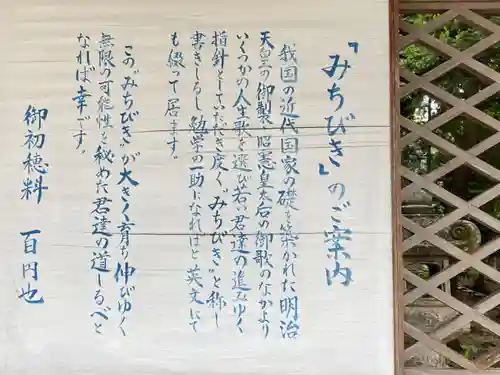 「みちびき」のご案内
我国の近代国家の礎を築かれた明治
天皇の御製、昭憲皇太后の御歌のなかより
いくつかの人生歌を選び若い君達の進みゆく
指針としていただき度く“みちびき”と称し
書きしるし勉学の一助になればと英文にて
も綴って居ます。
この“みちびき”が大きく育り伸びゆく
無限の可能性を秘めた君達の道しるべと
なれば幸です。
御初穂料 百円也